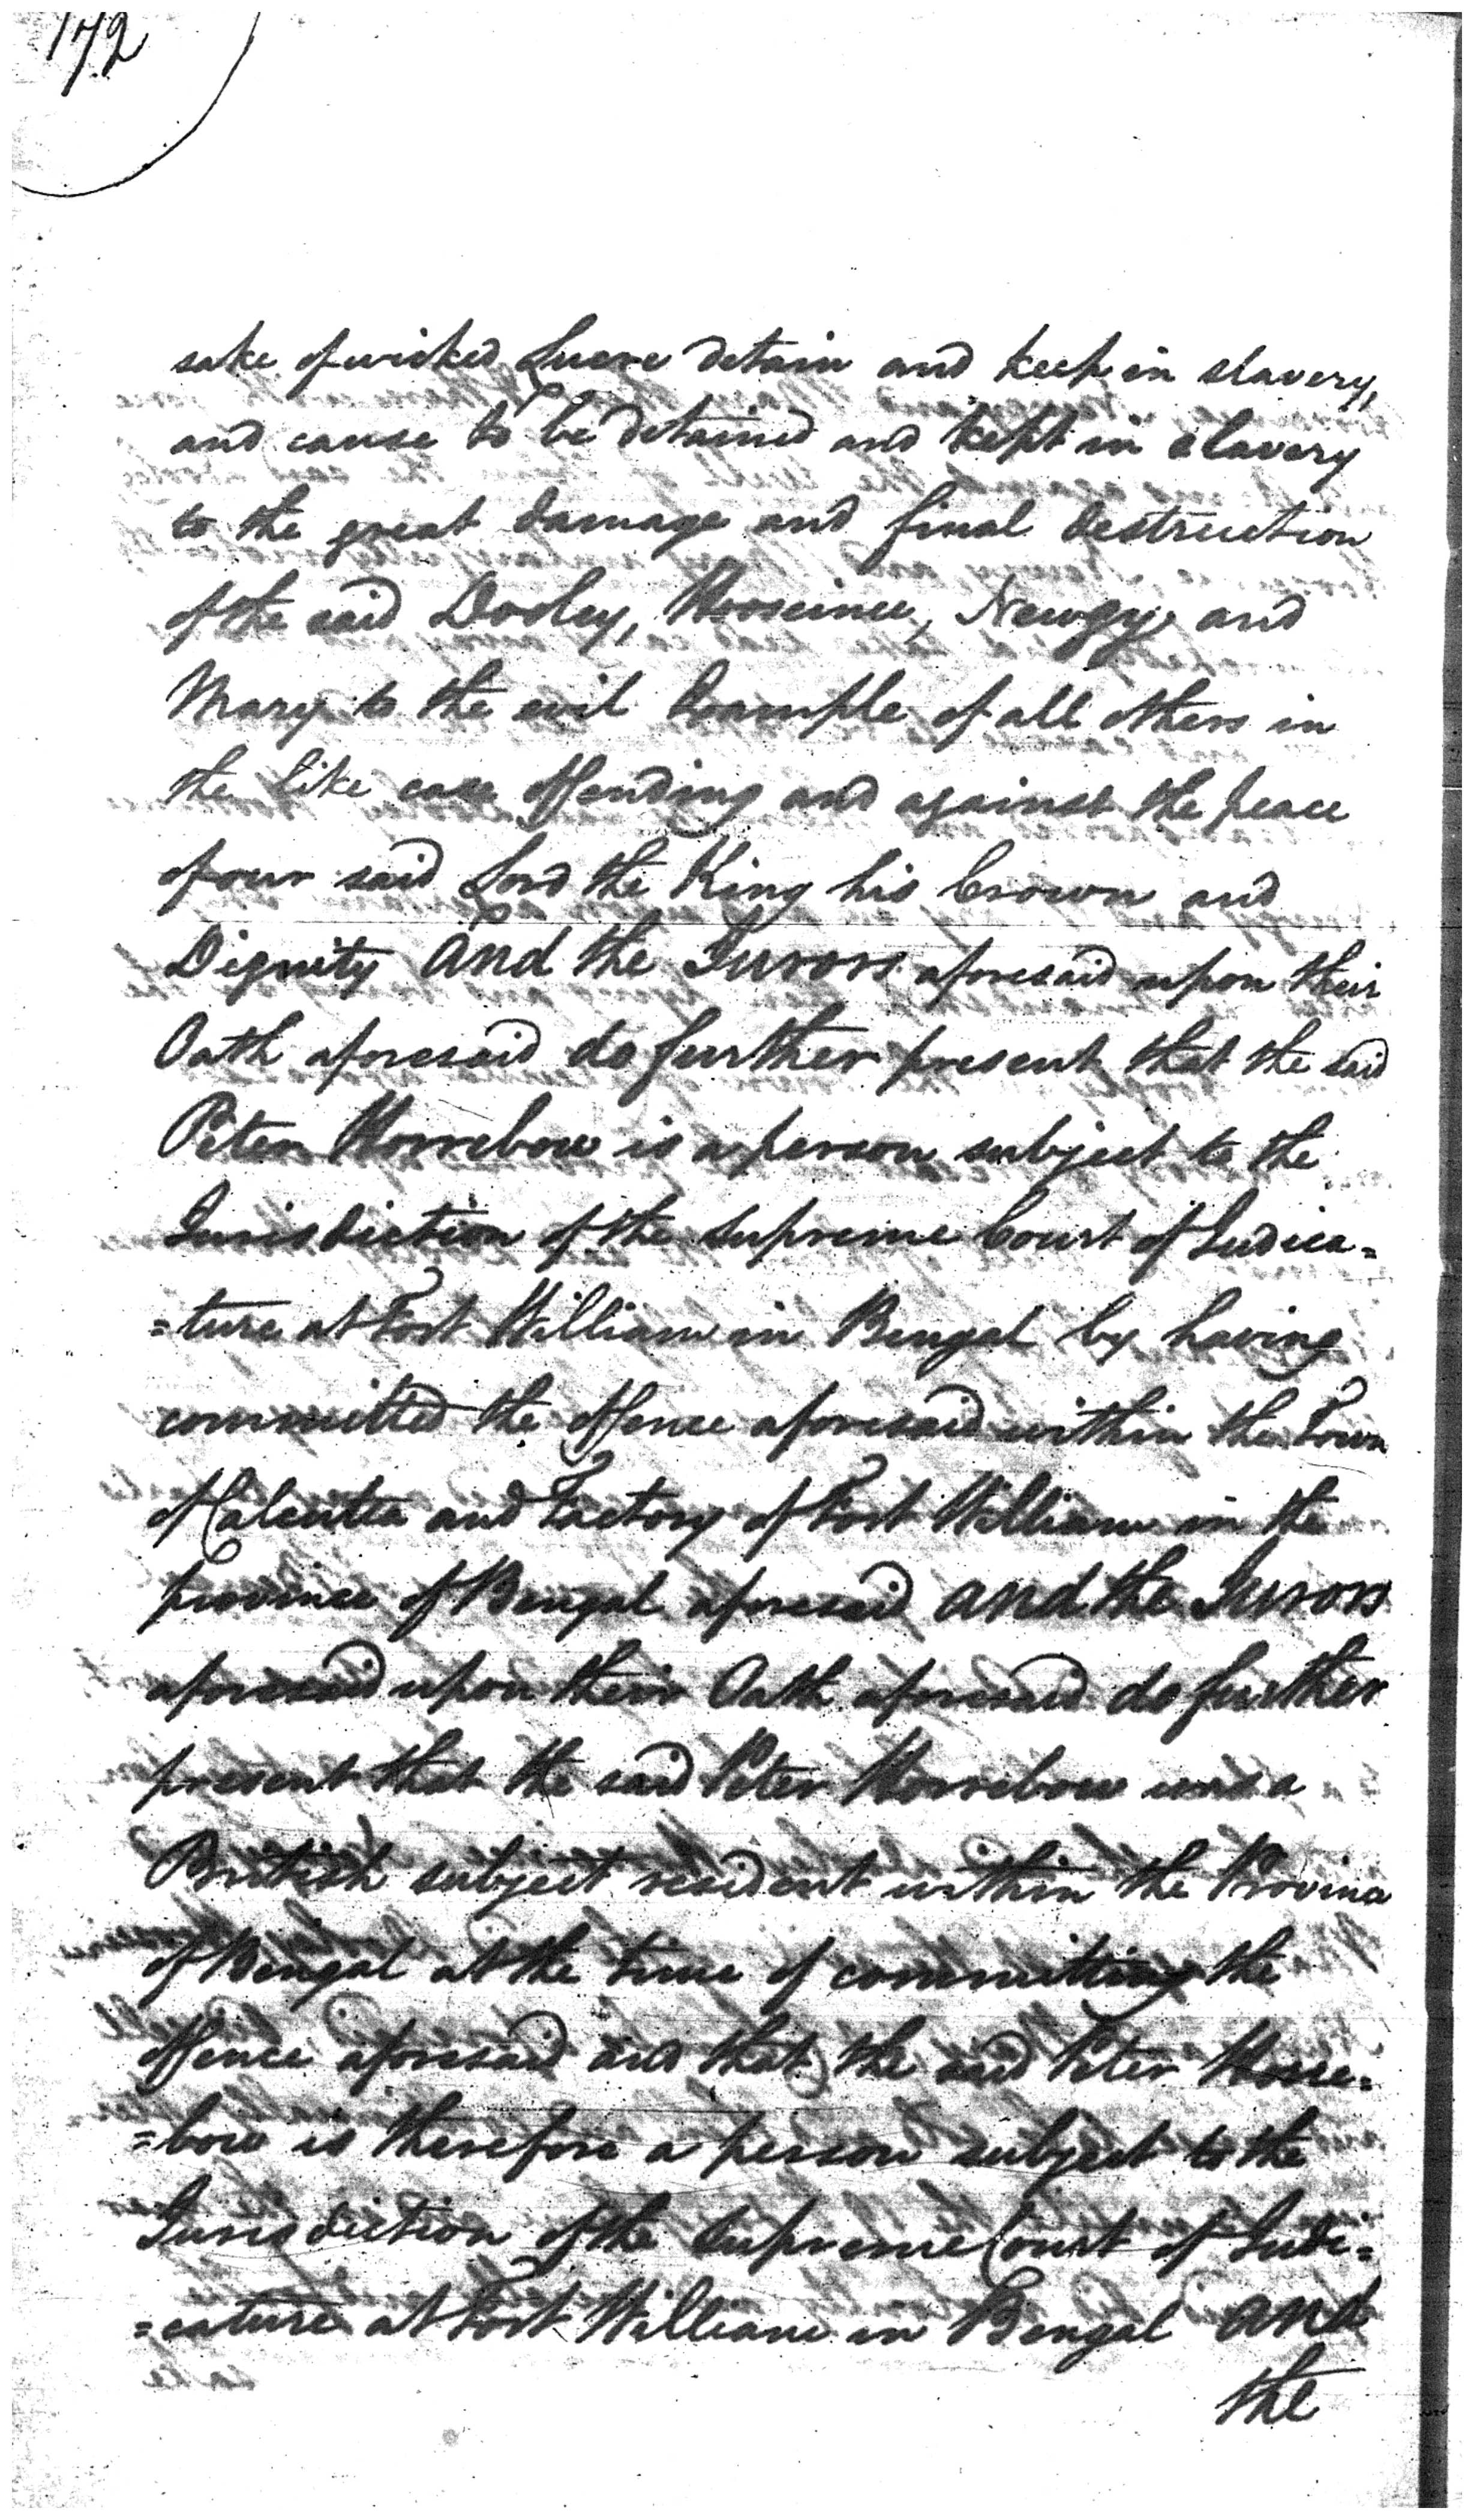 172
sake of wicked Lucre detain and keep in slavery,
and cause to be detained and kept in slavery
to the great damage and final destruction
of the said Dooley, Hosseinee, Newgy and
Mary to the evil Example of all others in
the like case offending and against the peace
of our said Lord the King his Crown and
Dignity And the Jurors aforesaid upon their
Oath aforesaid do further present that the said
Peter Horrebow is a person subject to the
Jurisdiction of the Supreme Court of Judica=
=ture at Fort William in Bengal by having
committed the offence aforesaid within the Town
of Calcutta and Factory of Fort William in the
province of Bengal aforesaid And the Jurors
aforesaid upon their Oath aforesaid do further
present that the said Peter Horrebow was a
British subject resident within the Province
of Bengal at the time of committing the
offence aforesaid and that the said Peter Horre=
=bow is therefore a person subject to the
Jurisdiction of the Supreme Court of Judi=
=cature at Fort William in Bengal And
the